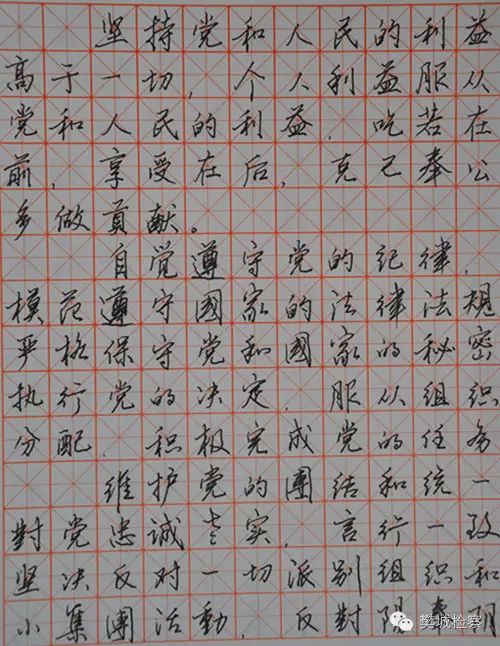 坚持党和人民的利益
高于一切，个人利益服从
党和人民的利益，吃苦在
前，享受在后，克己奉公
多做贡献。
自觉遵守党的纪律，
模范遵守國家的法律法规
严格保守党和國家的秘密
执行党的决定，服从组织
分配，积极完成党的任务
维护党的團结和统一
對党忠诚老实，言行一致
坚决反对一切派别组织和
小集團活動，反對陽奉阴
樊城检察